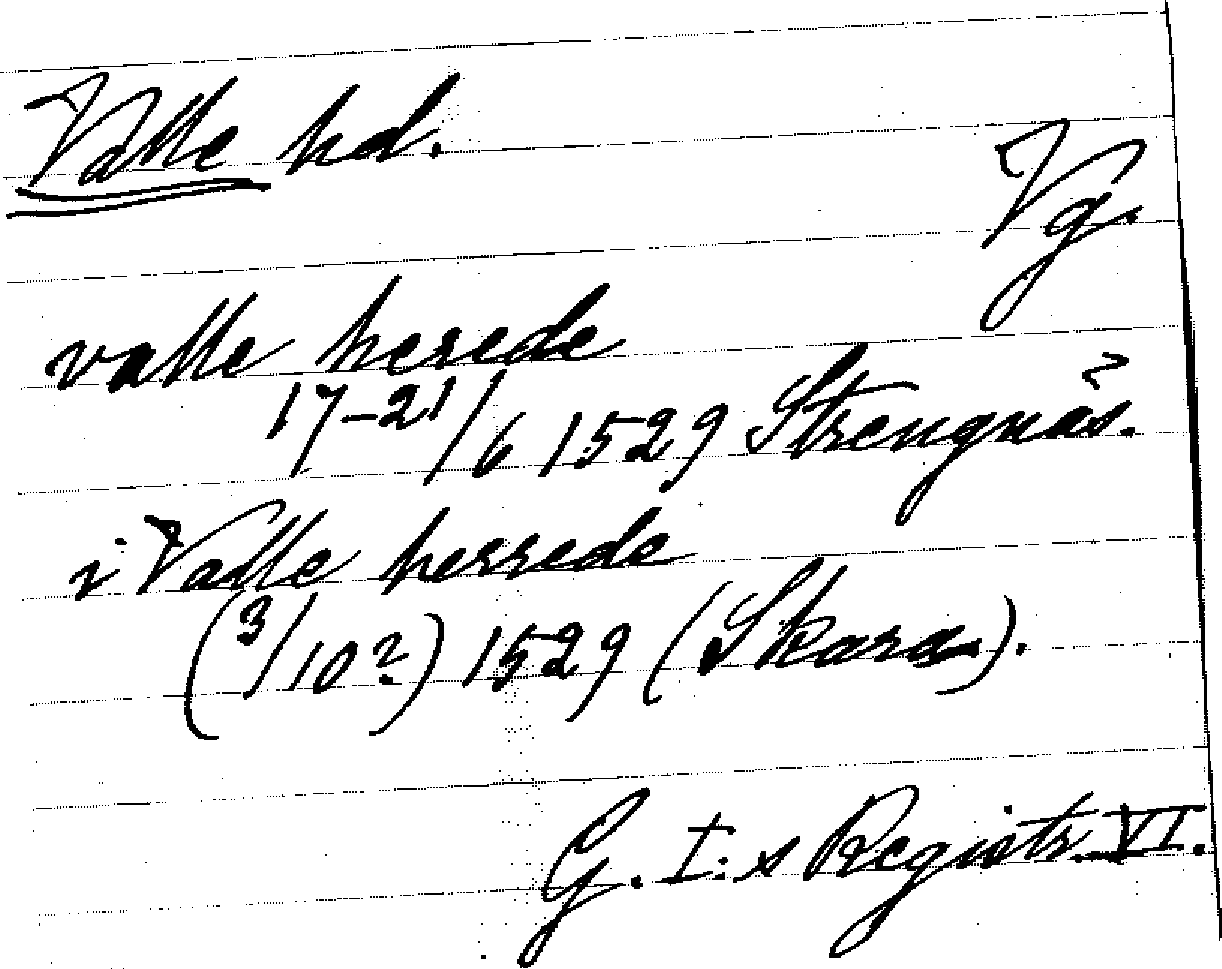 Valle hd.
Vg.
valle herede
17-21/6 1529 Strengnäs.
i Valle herrede
(3/10?) 1529 (Skara).
G. I:s Registr. VI.